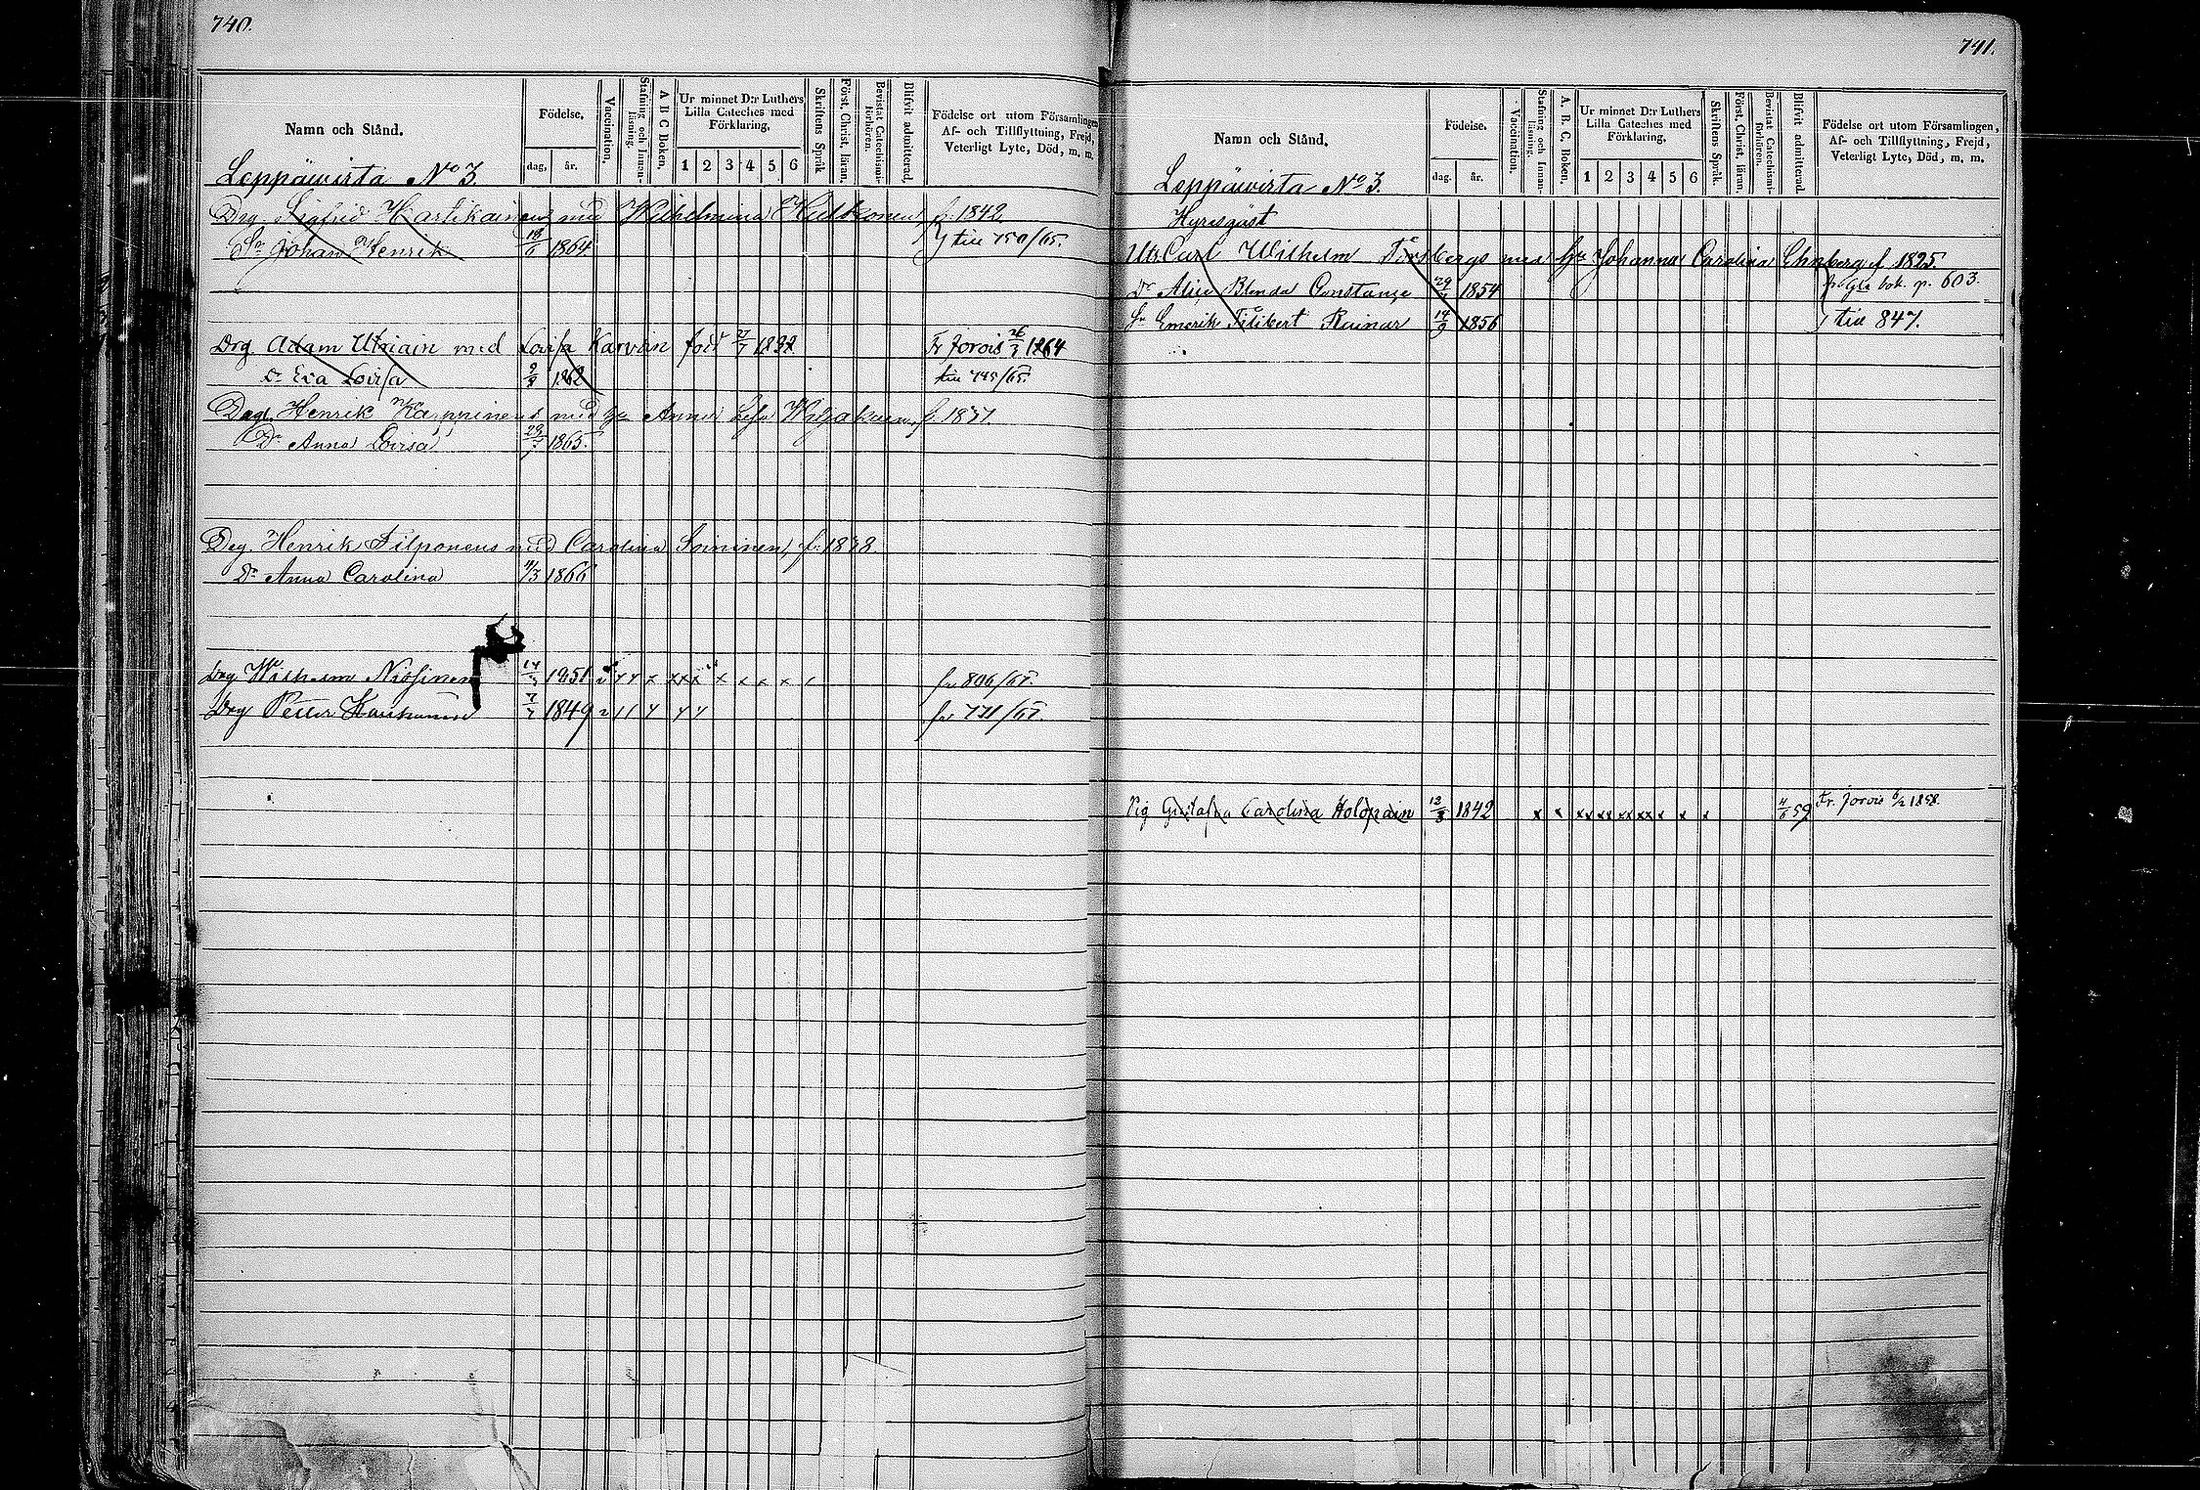 740.
Namn och Stånd.
Födelse.
dag.
år.
Vaccination.
Stafning och Innan-läsning.
A B C Boken.
Ur minnet D:r Luthers
Lilla Cateches med
Förklaring.
1 2 3 4 5 6
Skriftens Språk
Först. Christ. läran.
Bevistat Catechismi-förhören.
Blifvit admitterad.
Födelse ort utom Församlingen,
Af- och Tillflyttning, Frejd,
Veterligt Lyte, Död, m. m.
Leppäwirta No 3.
Drg. Sigfrid Hartikainens med Wilhelmina f. 1842
Sn Johan Henrik 1864 till 750/65.
Drg Adam med Lovisa född 27/7 Fr Jorois 26/3 1864
Dr Eva Lovisa 1862 till
Drg. Henrik Karppinens med Anna f. 1837.
Dr Anna Lovisa 1865.
Drg. Henrik Filponens med Carolina Soininen, f. 1838.
Dr Anna Carolina 11/3 1866
Drg Wilhelm Nissinen 1851 fr 806/67.
Drg Petter 7/7 1849 fr 771/67.
741.
Namn och Stånd.
Födelse.
dag.
år.
Vaccination.
Stafning och Innan-läsning.
A. B. C. Boken.
Ur minnet D:r Luthers
Lilla Cateches med
Förklaring.
1 2 3 4 5 6
Skriftens Språk.
Först. Christ. läran.
Bevistat Catechismi-förhören.
Blifvit admitterad
Födelse ort utom Församlingen,
Af- och Tillflyttning, Frejd,
Veterligt Lyte, Död, m. m.
Leppäwirta No 3.
Hyresgäst
Carl Wilhelm Forsbergs med Johanna Carolina Ehnberg f. 1825.
Dr Alice Blenda Constance 1854 bok. p. 603.
Sn Emerik Filibert Rainar 14/9 1856 till 847.
Pig Gustafva Carolina Holopain 1842 x x xx xx xx xx x x x 59 Fr. Jorois 1858.